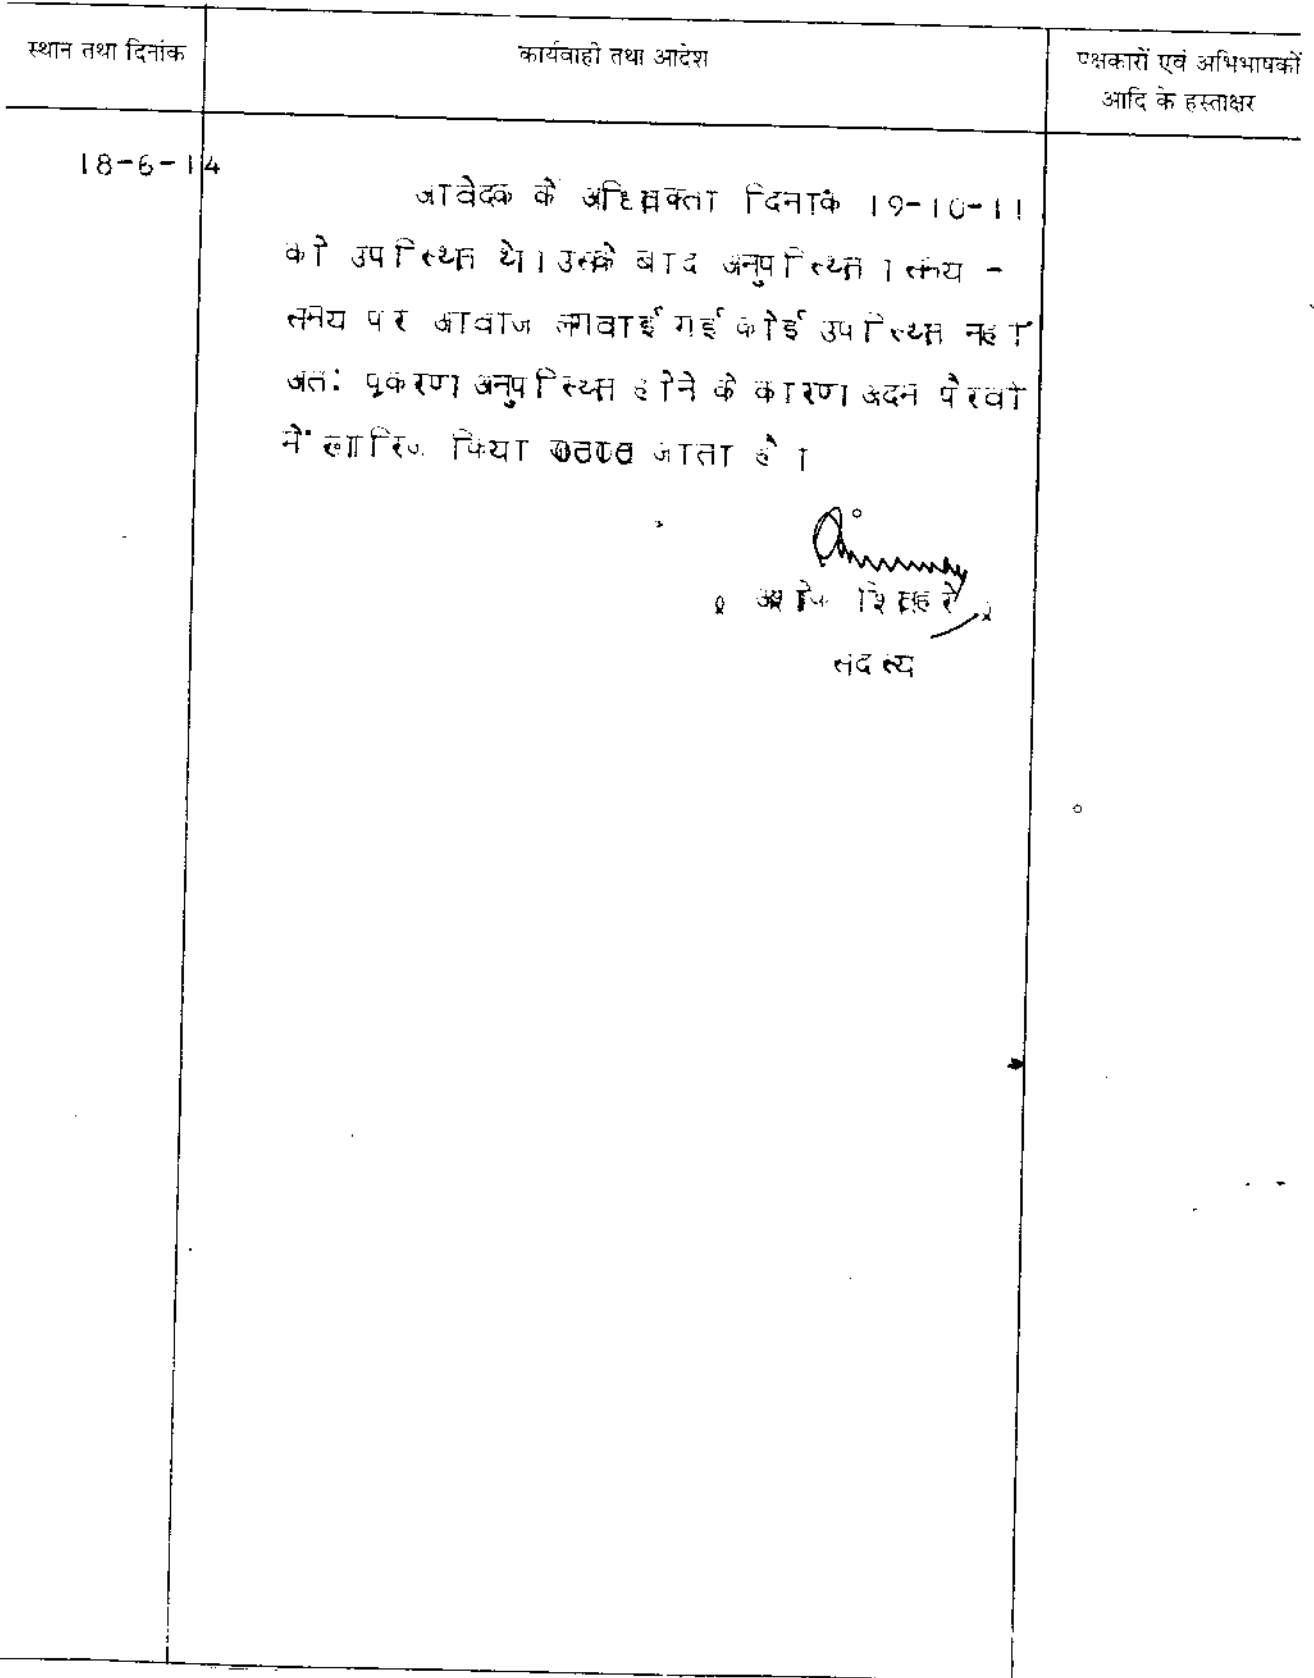 स्थान तथा दिनांक
कार्यवाही तथा आदेश
पक्षकारों एवं अभिभाषकों
आदि के हस्ताक्षर
18-6-14
आवेदक के अधिवक्ता दिनांक 19-10-11
को उपस्थित थे। उसके बाद अनुपस्थित । समय -
समय पर आवाज लगवाई गई कोई उपस्थित नहीं
अतः प्रकरण अनुपस्थित होने के कारण अदम पैरवी
में खारिज किया जाता है ।
सदस्य